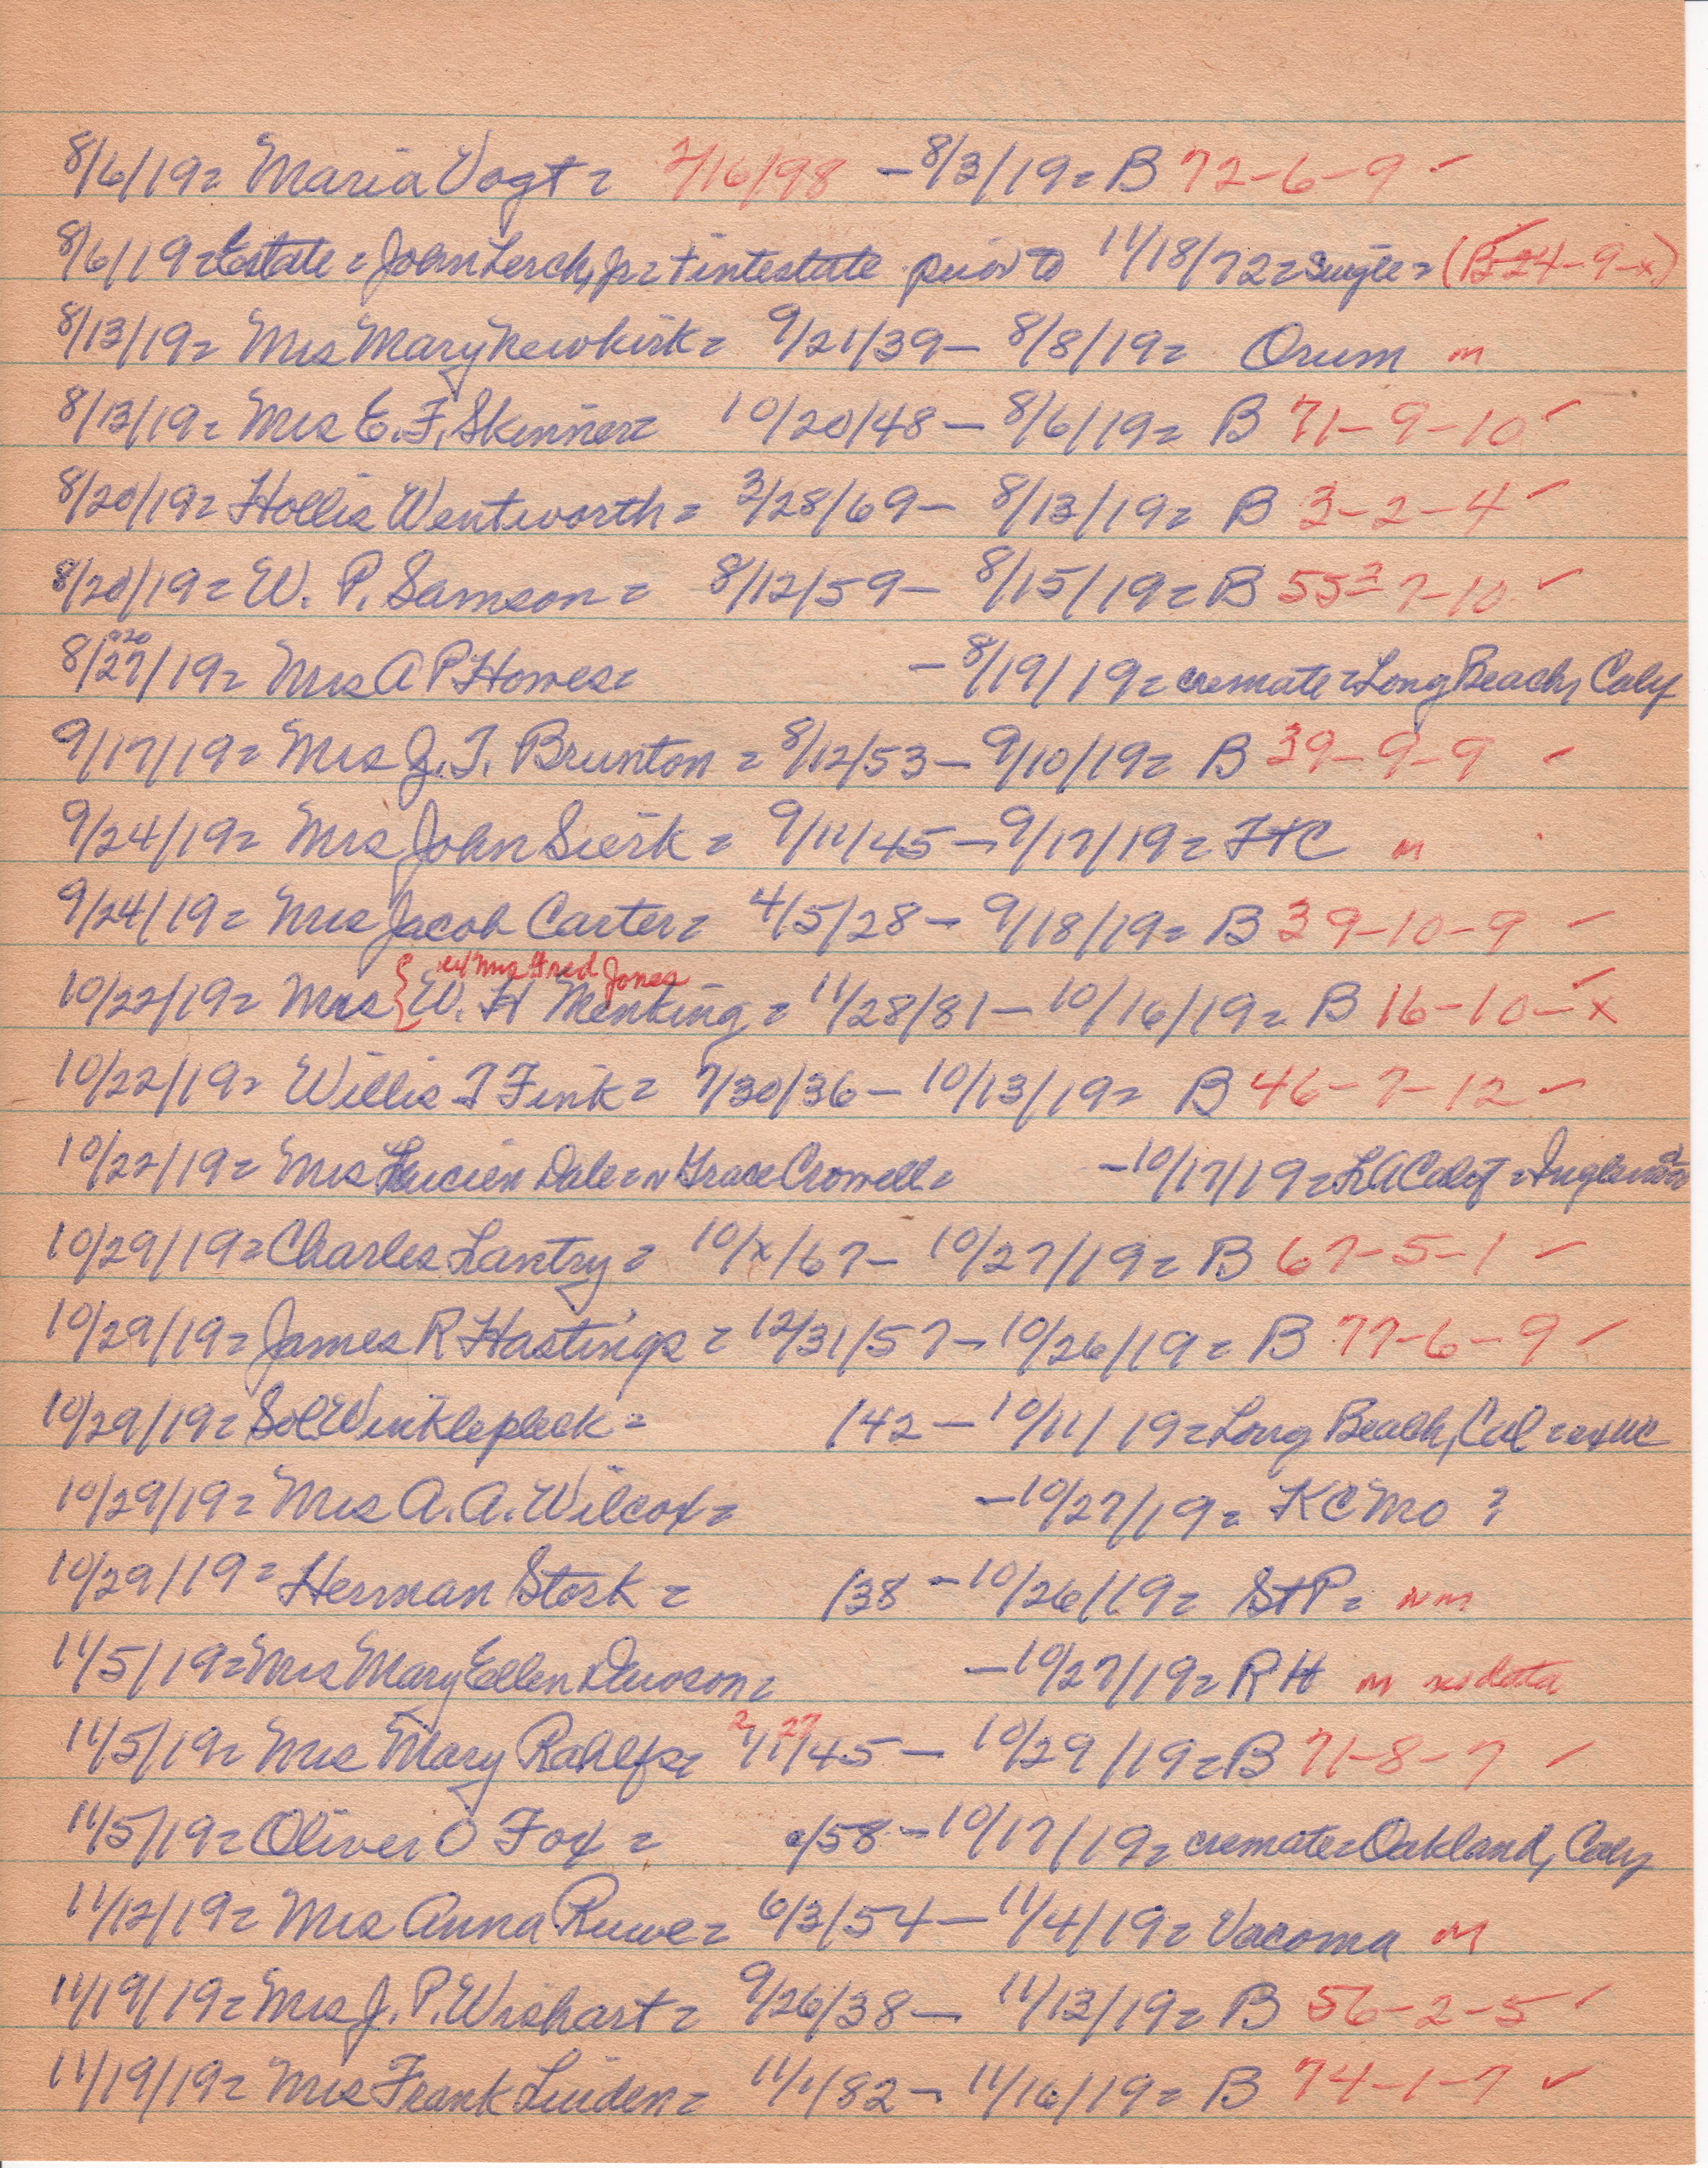 8/6/19= Maria Vogt= 2/16/98 - 8/3/19= B 72-6-9 ✓
8/6/19=Estate=John Lerch, Jr=+intestate prior to 11/18/72=single=(B-24-9-x)
8/13/19= Mrs Mary Newkirk= 9/21/39- 8/8/19= Orum m
8/13/19= Mrs E. F. Skinner= 10/20/48- 8/6/19= B 71-9-10 ✓
8/20/19= Hollis Wentworth= 3/28/69- 8/13/19= B 3-2-4 ✓
8/20/19= W. P. Samson= 8/12/59- 8/15/19= B 55-7-10 ✓
8/27/19= Mrs A P Howes= -8/19/19=cremate=Long Beach, Calif
9/17/19= Mrs J. T. Brunton= 8/12/53- 9/10/19= B 39-9-9 ✓
9/24/19= Mrs John Sierk= 9/11/45-9/17/19= FtC m
9/24/19= Mrs Jacob Carter= 4/5/28- 9/18/19= B 39-10-9 ✓
10/22/19= Mrs { W. H Menking= 11/28/81-10/16/19= B 16-10-x ✓
Mrs Fred Jones
10/22/19= Willis T Fink= 7/30/36- 10/13/19= B 46-7-12 ✓
10/22/19= Mrs Lucien Dale=n Grace Crowell= -10/17/19=LA Calif=Inglewood
10/29/19=Charles Lantry= 10/x/67- 10/27/19= B 67-5-1 ✓
10/29/19=James R Hastings= 12/31/57-10/26/19= B 77-6-9 ✓
10/29/19= Sol Winklepleck= /42-10/11/19=Long Beach, Cal=
10/29/19= Mrs A. A. Wilcox= -10/27/19= KC Mo ?
10/29/19= Herman Stork= /38 -10/26/19= StP= nm
11/5/19=Mrs Mary Ellen = -10/27/19= RH m no data
11/5/19= Mrs Mary Rahlfs= 2 27
/11/45- 10/29/19= B 71-8-7 ✓
11/5/19= Oliver O Fox= c/58-10/17/19=cremate=Oakland, Calif
11/12/19= Mrs Anna Ruwe= 6/3/54-11/4/19= Vacoma m
11/19/19= Mrs J. P. Wishart= 9/26/38- 11/13/19= B 56-2-5 ✓
11/19/19= Mrs Frank Linden= 11/1/82- 11/16/19= B 74-1-7 ✓